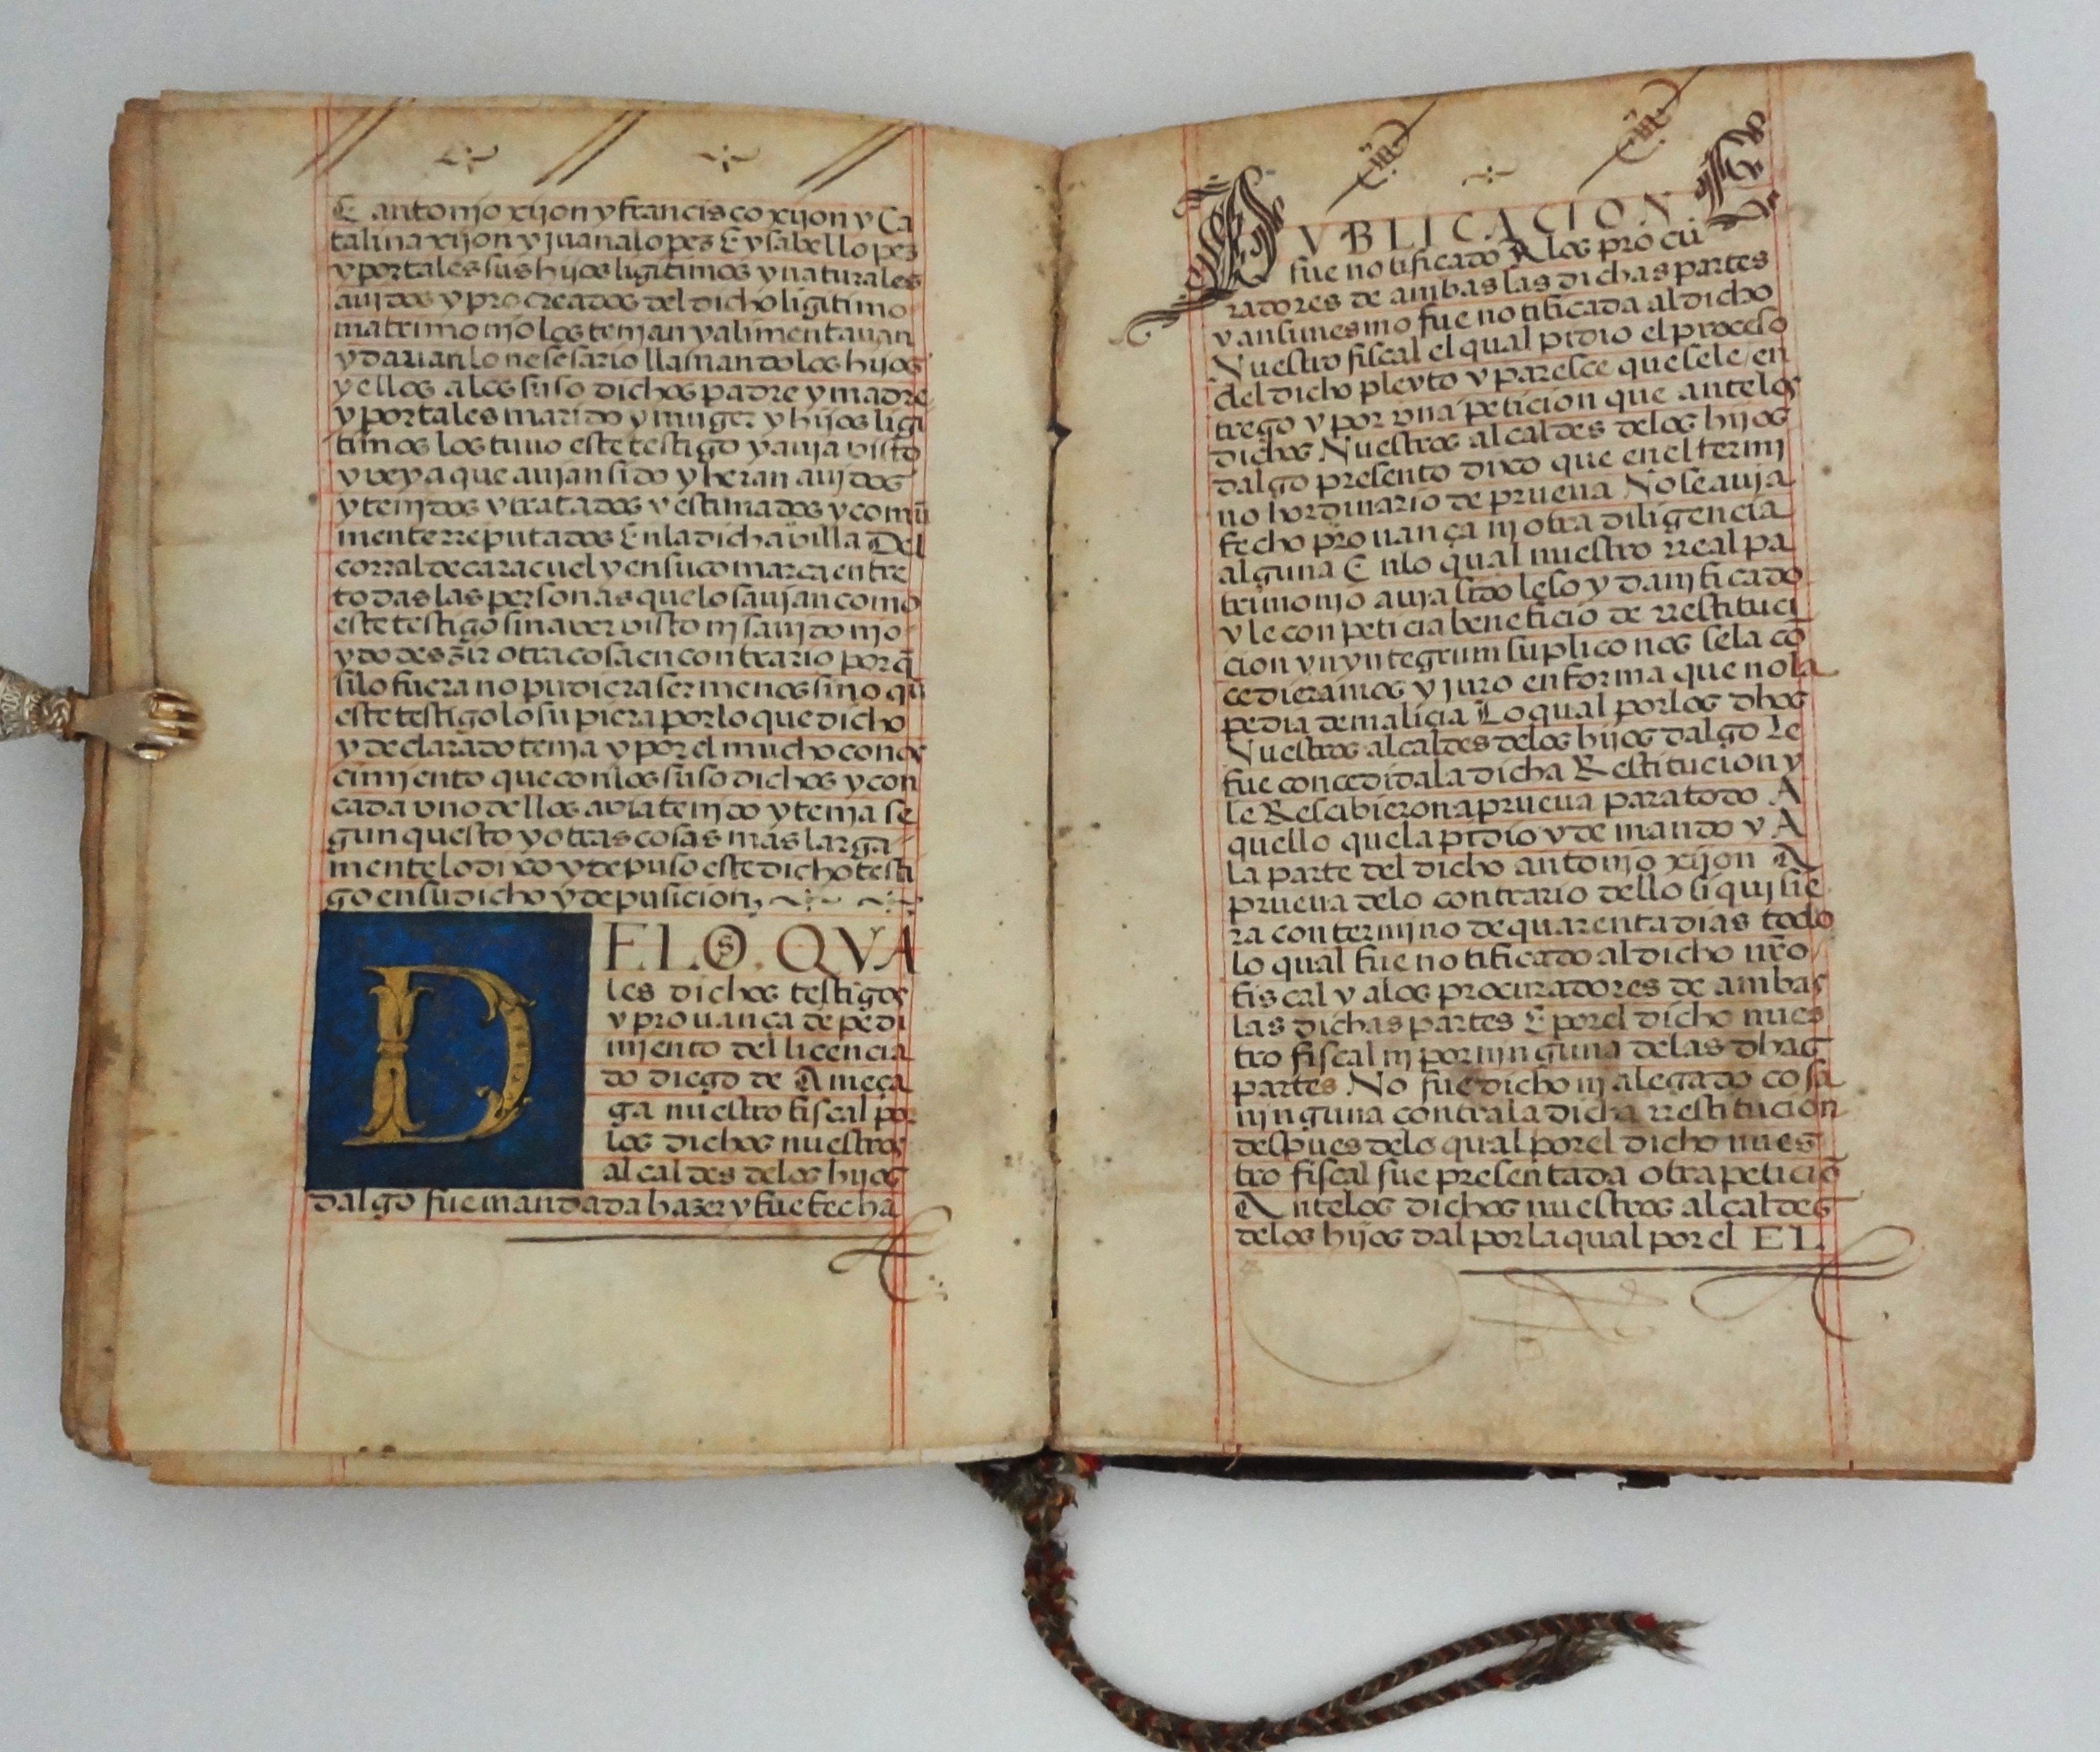 E antonio xijon y francisco xijon y Ca
talina xijon y juana lopez E ysabel lopez
y por tales sus hijos ligitimos y naturales
auidos y procreados del dicho ligitimo
matrimonio los tenian y alimentauan
y dauan lo nesesario llamandolos hijos
y ellos a los suso dichos padre y madre
y por tales marido y muger y hijos ligi
timos los tuuo este testigo y auia visto
y veya que auian sido y heran auidos
y tenidos y tratados y estimados y comũ
mente rreputados En la dicha villa Del
corral de caracuel y en su comarca entre
todas las personas que lo sauian como
este testigo sin aver visto ni sauido ni o
ydo deszir otra cosa en contrario porq̃
si lo fuera no pudiera ser menos sino qũ
este testigo lo supiera por lo que dicho
y declarado tenia y por el mucho conos
cimiento que con los suso dichos y con
cada vno dellos avia tenido y tenia se
gun questo y otras cosas mas larga
mente lo dixo y depuso este dicho testi
go en su dicho y depusicion,
DELOS. QVA
les dichos testigos
y prouança de pedi
miento del licencia
do diego de Ameça
ga nuestro fiscal por
los dichos nuestros
alcaldes delos hijos
dalgo fue mandada hazer y fue fecha
PVBLICACION
fue notificado A los procu
radores de ambas las dichas partes
y ansimesmo fue notificada al dicho
Nuestro fiscal el qual pidio el proceso
del dicho pleyto y paresce que se le en
trego y por vna peticion que antelos
dichos Nuestros alcaldes delos hijos
dalgo presento dixo que en el termi
no hordinario de prueua No se auia
fecho prouança ni otra diligencia
alguna E nlo qual nuestro rreal pa
trimonio auia sido leso y danificado
y le conpeticia beneficio de rrestituci
cion yn yntegrum suplico nos se la cõ
cedieramos y juro en forma que no la
pedia de malicia Lo qual por los dhos
Nuestros alcaldes delos hijos dalgo Le
fue concedida la dicha Restitucion y
le Rescibieron a prueua para todo A
quello que la pidio y de mando y A
la parte del dicho antonio xijon A
prueua delo contrario dello si quisie
ra con termino de quarenta dias todo
lo qual fue notificado al dicho nr̃o
fiscal y alos procuradores de ambas
las dichas partes E por el dicho nues
tro fiscal ni por ninguna delas dhas
partes No fue dicho ni alegado cosa
ninguna contra la dicha rrestitucion
despues delo qual por el dicho nues
tro fiscal fue presentada otra peticiõ
Antelos dichos nuestros alcaldes
delos hijos dal por la qual por el EL